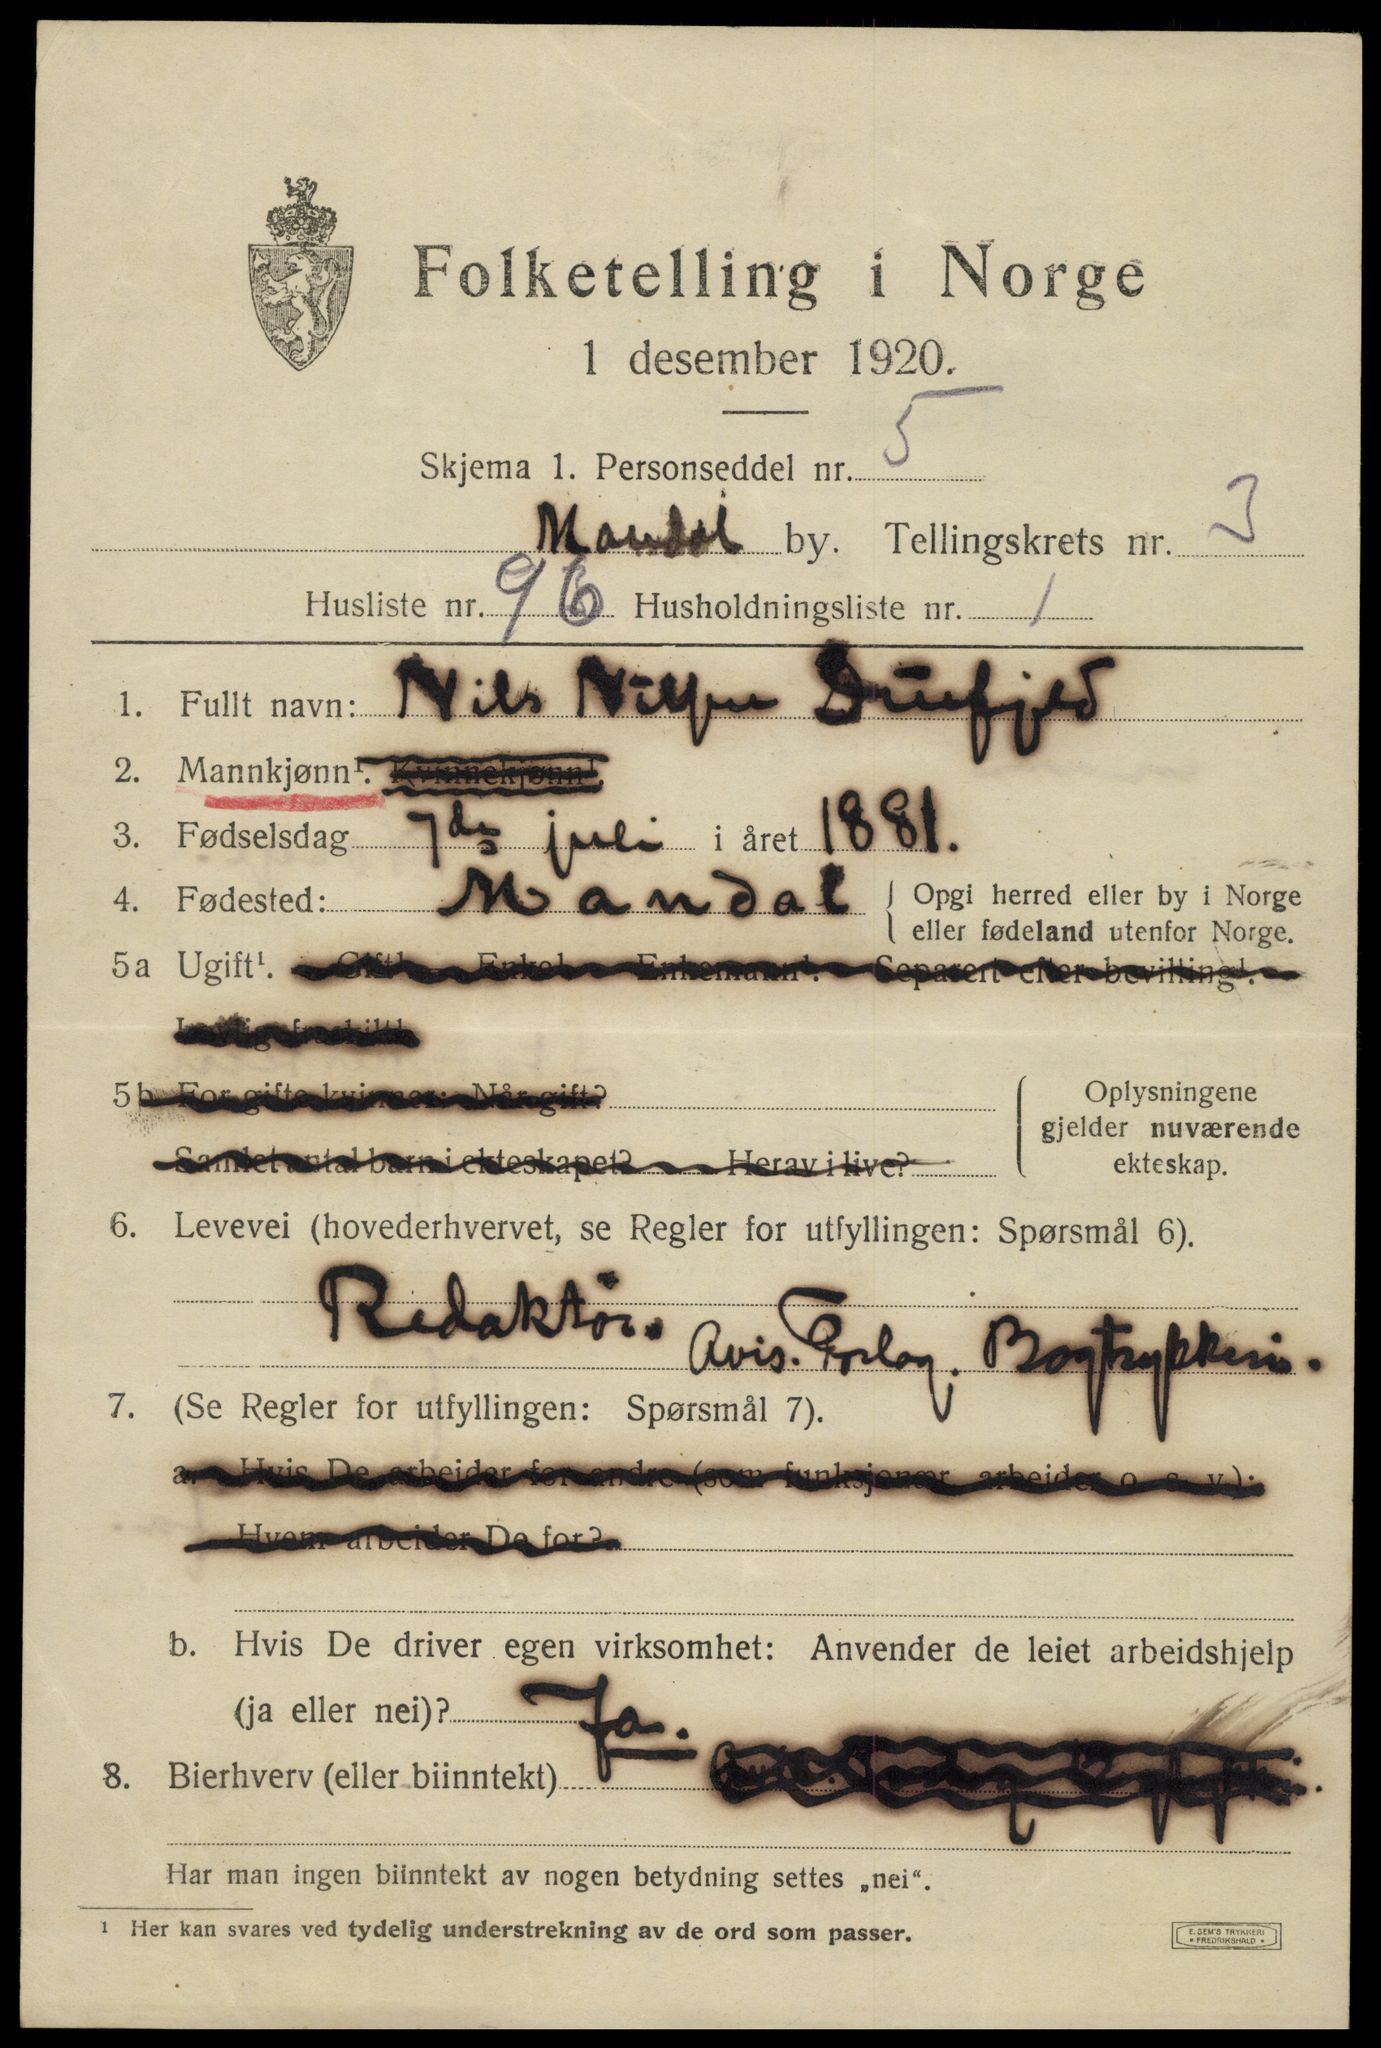 Folketelling i Norge
1 desember 1920.
Skjema 1. Personseddel nr. 5
Mandal by. Tellingskrets nr. 3
Husliste nr. 96 Husholdningsliste nr. 1
1. Fullt navn: Nils
2. Mannkjønn¹. Kvinnekjønn¹.
3. Fødselsdag 7de juli i året 1881.
4. Fødested: Mandal { Opgi herred eller by i Norge
eller fødeland utenfor Norge.
5a Ugift¹. Gift¹. Enke¹. Enkemann¹. Separert efter bevilling¹.
Lovlig fraskilt¹.
5b For gifte kvinner: Når gift?
Samlet antal barn i ekteskapet? Herav i live?
Oplysningene
gjelder nuværende
ekteskap.
6. Levevei (hovederhvervet, se Regler for utfyllingen: Spørsmål 6).
Redaktør.
Avis. Forlag. Bogtrykkeri.
7. (Se Regler for utfyllingen: Spørsmål 7).
a. Hvis De arbeider for andre (som funksjonær, arbeider o. s. v.):
Hvem arbeider De for?
b. Hvis De driver egen virksomhet: Anvender de leiet arbeidshjelp
(ja eller nei)? Ja.
8. Bierhverv (eller biinntekt)
Har man ingen biinntekt av nogen betydning settes „nei“.
¹ Her kan svares ved tydelig understrekning av de ord som passer.
E. SEM'S TRYKKERI
* FREDRIKSHALD *